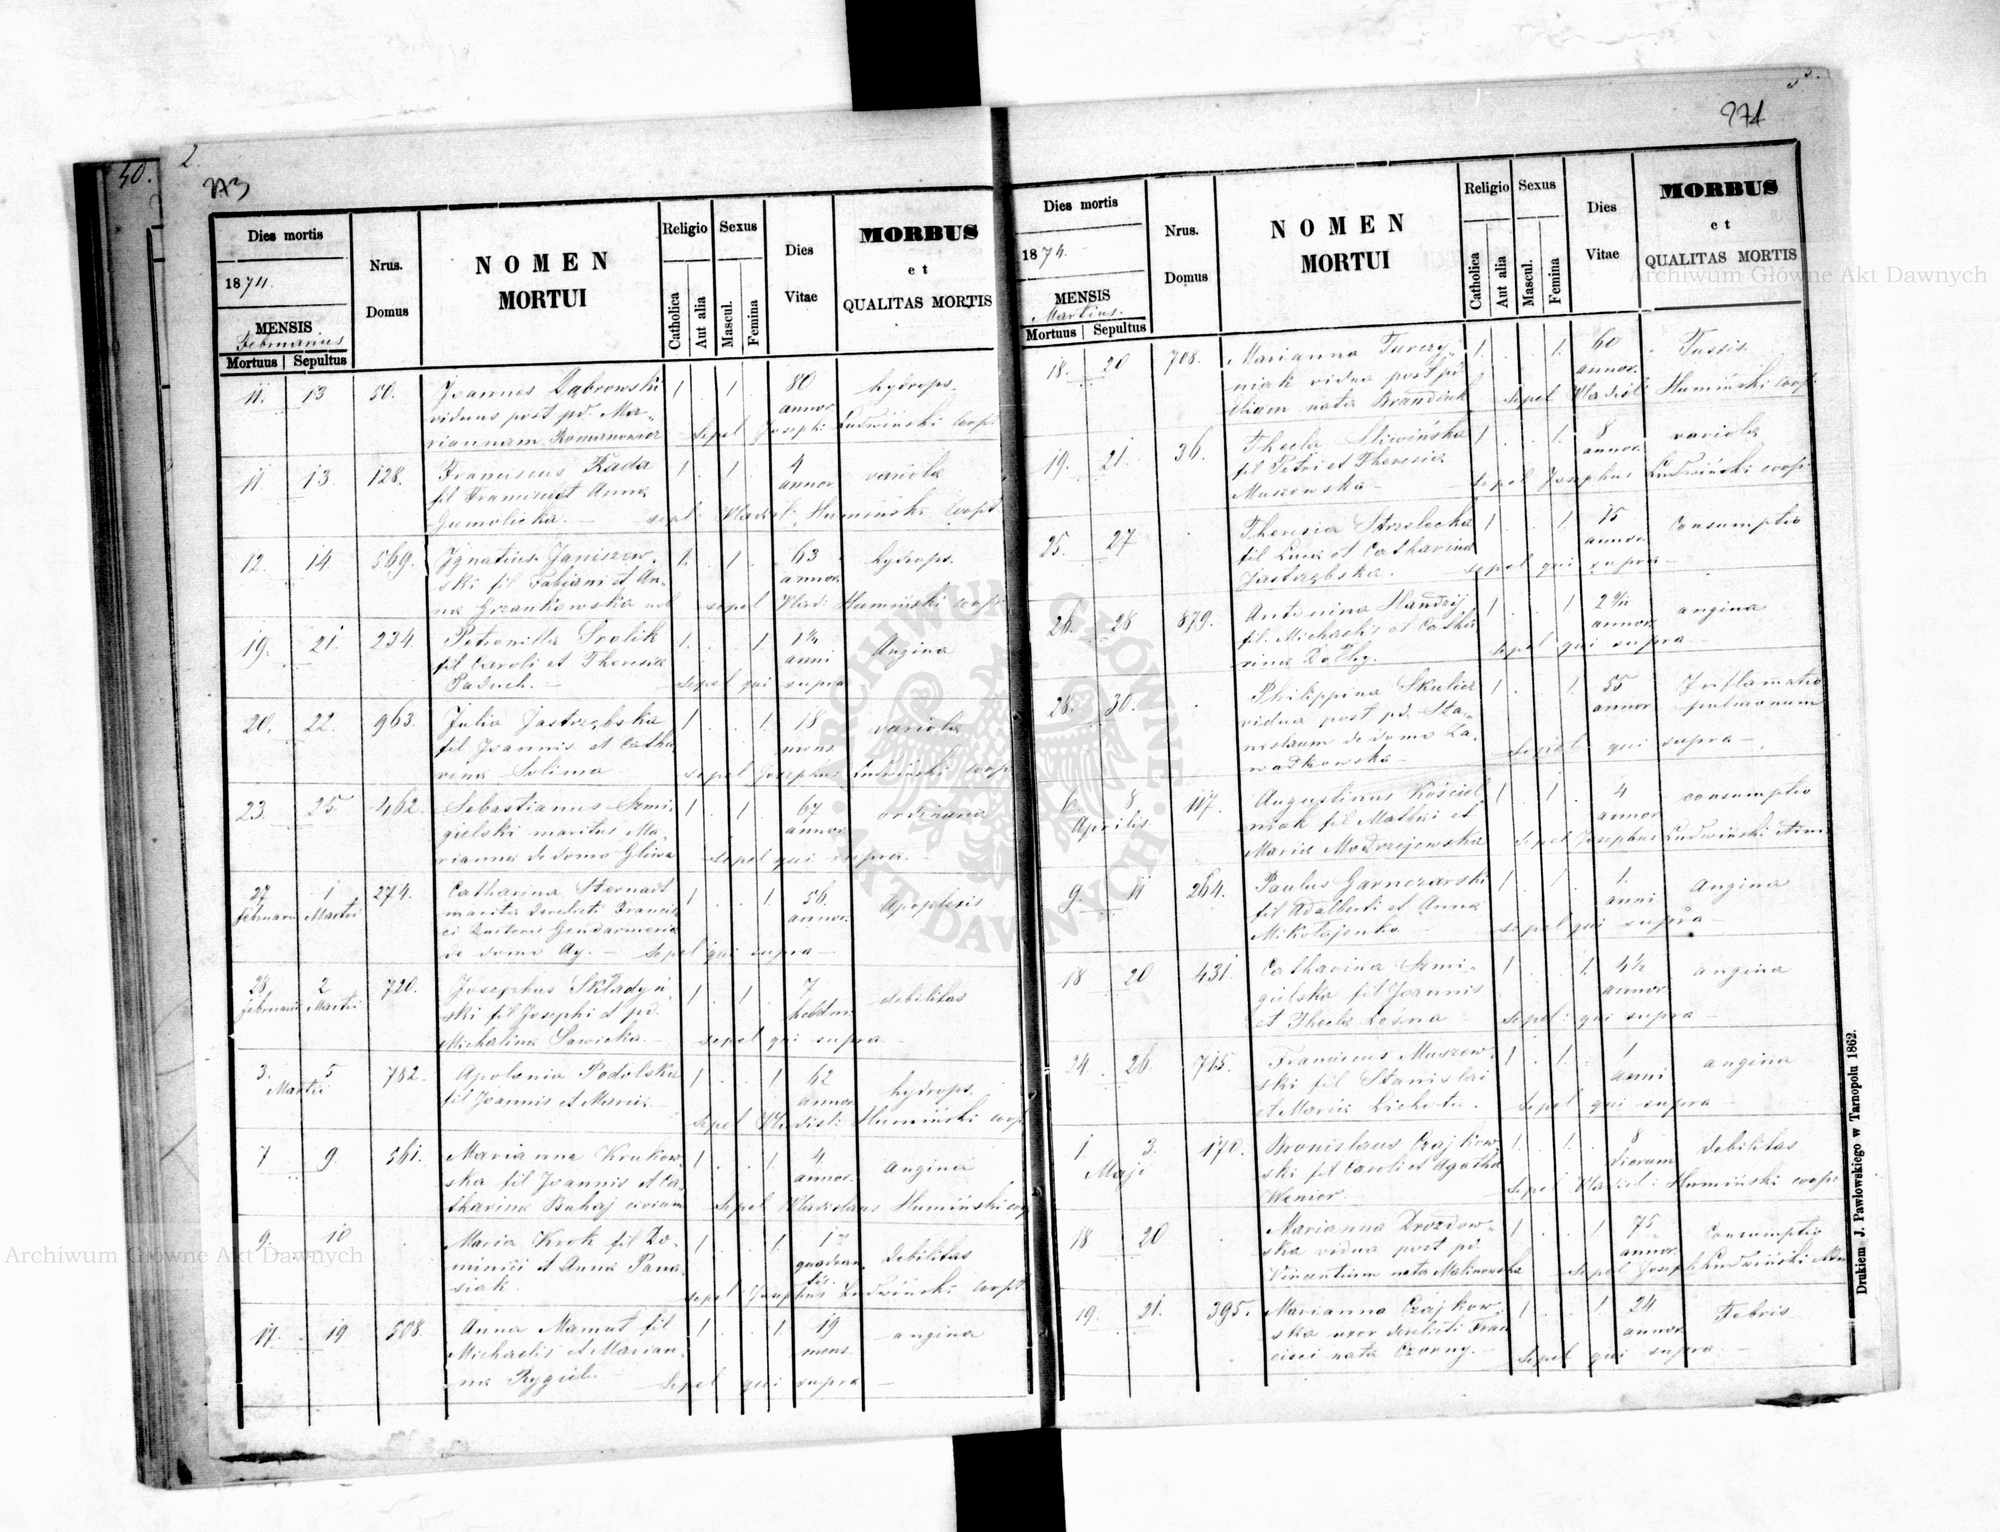 50.
2.
273
Dies mortis
1874.
MENSIS
Februarius
Mortuus | Sepultus
Nrus.
Domus
NOMEN
MORTUI
Religio
Catholica
Aut alia
Sexus
Mascul.
Femina
Dies
Vitae
MORBUS
et
QUALITAS MORTIS
11. 13 50. Joannes Dąbrowski 1 . 1 . 80 hydrops.
viduus post pd. Ma- annor.
riannam Romanowicz sepel Joseph: Ludwiński coopt
11 13. 128. Franciscus Rada 1 . 1 . 4 variola
fil Francisci et Anna annor
sepel: Vladisl: Humiński Coopt
12. 14 569. Ignatius Janiszew- 1. . 1 . 63 hydrops.
ski fil Fabiani et An- annor.
na Grzankowska sepel Vladi: Humiński coopt
19. 21. 234. Petronilla Srolik 1. . . 1 Angina
fil Caroli et Theresia anni
Paduch. — sepel qui supra
20. 22. 963. Julia Jastrzębska 1 . . 1 18 variola
fil Joannis et Catha mens
rina Solima sepel Josephus Ludwiński coop.
23. 25. 462. Sebastianus Szmi- 1 . 1 . 67 ordinaria
gielski maritus Ma- annor.
rianna de domo sepel qui supra. —
27 1 274. Catharina Sternadt 1 . . 1 56. Apoplexis
Februarii Martii marita derelicti Francis annor.
ci Gendarmeria
de domo Ay. — sepel qui supra —
28. 2 720. Josephus Składyń- 1 . 1 . 7 debilitas
Februarii Martii ski fil Josephi et pd. hebdom:
Michalina Sawicka. — sepel qui supra
3. 5 782. Apolonia Podolska 1 . . 1 62 hydrops.
Martii fil Joannis et Maria — annor.
sepel Vladisl: Humiński coop
7 9. 561. Marianna Krukow- 1 . . 1. 4 angina
ska fil Joannis et Ca- annor.
tharina Buhaj civium sepel Vladislaus Humiński coop
9. 10 . Maria Krok fil Do- 1 . . 1. debilitas
minici et Anna Pana-
siak. sepel: Josephus Ludwiński coopt
17. 19 508. Anna Mamut fil 1 . . 1. 19 angina
Michaelis et Marian- mens
na Rygiel. — sepel qui supra —
274
Dies mortis
1874.
MENSIS
Martius.
Mortuus Sepultus
Nrus.
Domus
NOMEN
MORTUI
Religio
Catholica
Aut alia
Sexus
Mascul.
Femina
Dies
Vitae
MORBUS
et
QUALITAS MORTIS
18. 20 708. Marianna Turczy- 1. . . 1. 60 Tussis.
niak vidua post pd. annor.
Eliam nata sepel Vladisl: Humiński coopt.
19. 21. 36. Thecla Sliwińska 1 . . 1. 8 variola
fil Petri et Theresia annor.
Muszowska — sepel Josephus Ludwiński coop:
25. 27 . Theresia Strzelecka 1 . . 1. 15 Consumptio
fil Luca et Catharina annor.
Jastrzębska. sepel qui supra —
26. 28 879. Antonina 1 . . 1 angina
fil. Michaelis et Catha annor.
rina sepel qui supra —
28. 30. . Philippina Skulicz 1 . . 1 55 Inflamatio
vidua post pd. Sta- annor. pulmonum
nislaum de domo Za-
wadkowska — sepel qui supra —
6. 8 117. Augustinus Kościel 1 . 1 . 4 consumptio
Aprilis. niak fil Mathei et annor
Maria Modrzejewska sepel Josephus Ludwiński
9. 11 264. Paulus Garnczarski 1 . 1 . 1. angina
fil Adalberti et Anna anni
Mikołajenko — sepel qui supra —
18 20 431. Catharina Szmi- 1 . . 1. 4½ angina
gielska fil Joannis annor.
et Thecla Leśna sepel: qui supra —
24 26. 715. Franciscus Muszew- 1 . 1. . 1 angina
ski fil Stanislai anni
et Maria Lichota. sepel qui supra —
1. 3. 170. Bronislaus Czajkow- 1 . 1. . 8 debilitas
Maji ski fil Caroli et Agatha dierum
Wenier. sepel Vladisl: Humiński coop:
18 20 . Marianna Drozdow- 1 . . 1 75 Consumptio
ska vidua post pd. annor.
Vincentium nata Malinowska sepel Joseph Ludwiński
19. 21. 395. Marianna Czajkow- 1 . . 1 24 Febris
ska uxor derelicti Fran annor.
cisci nata Czorny. — sepel qui supra —
Drukiem J. Pawłowskiego w Tarnopolu 1862.
Archiwum Główne Akt Dawnych
Archiwum Główne Akt Dawnych
ARCHIWUM GŁÓWNE AKT DAWNYCH